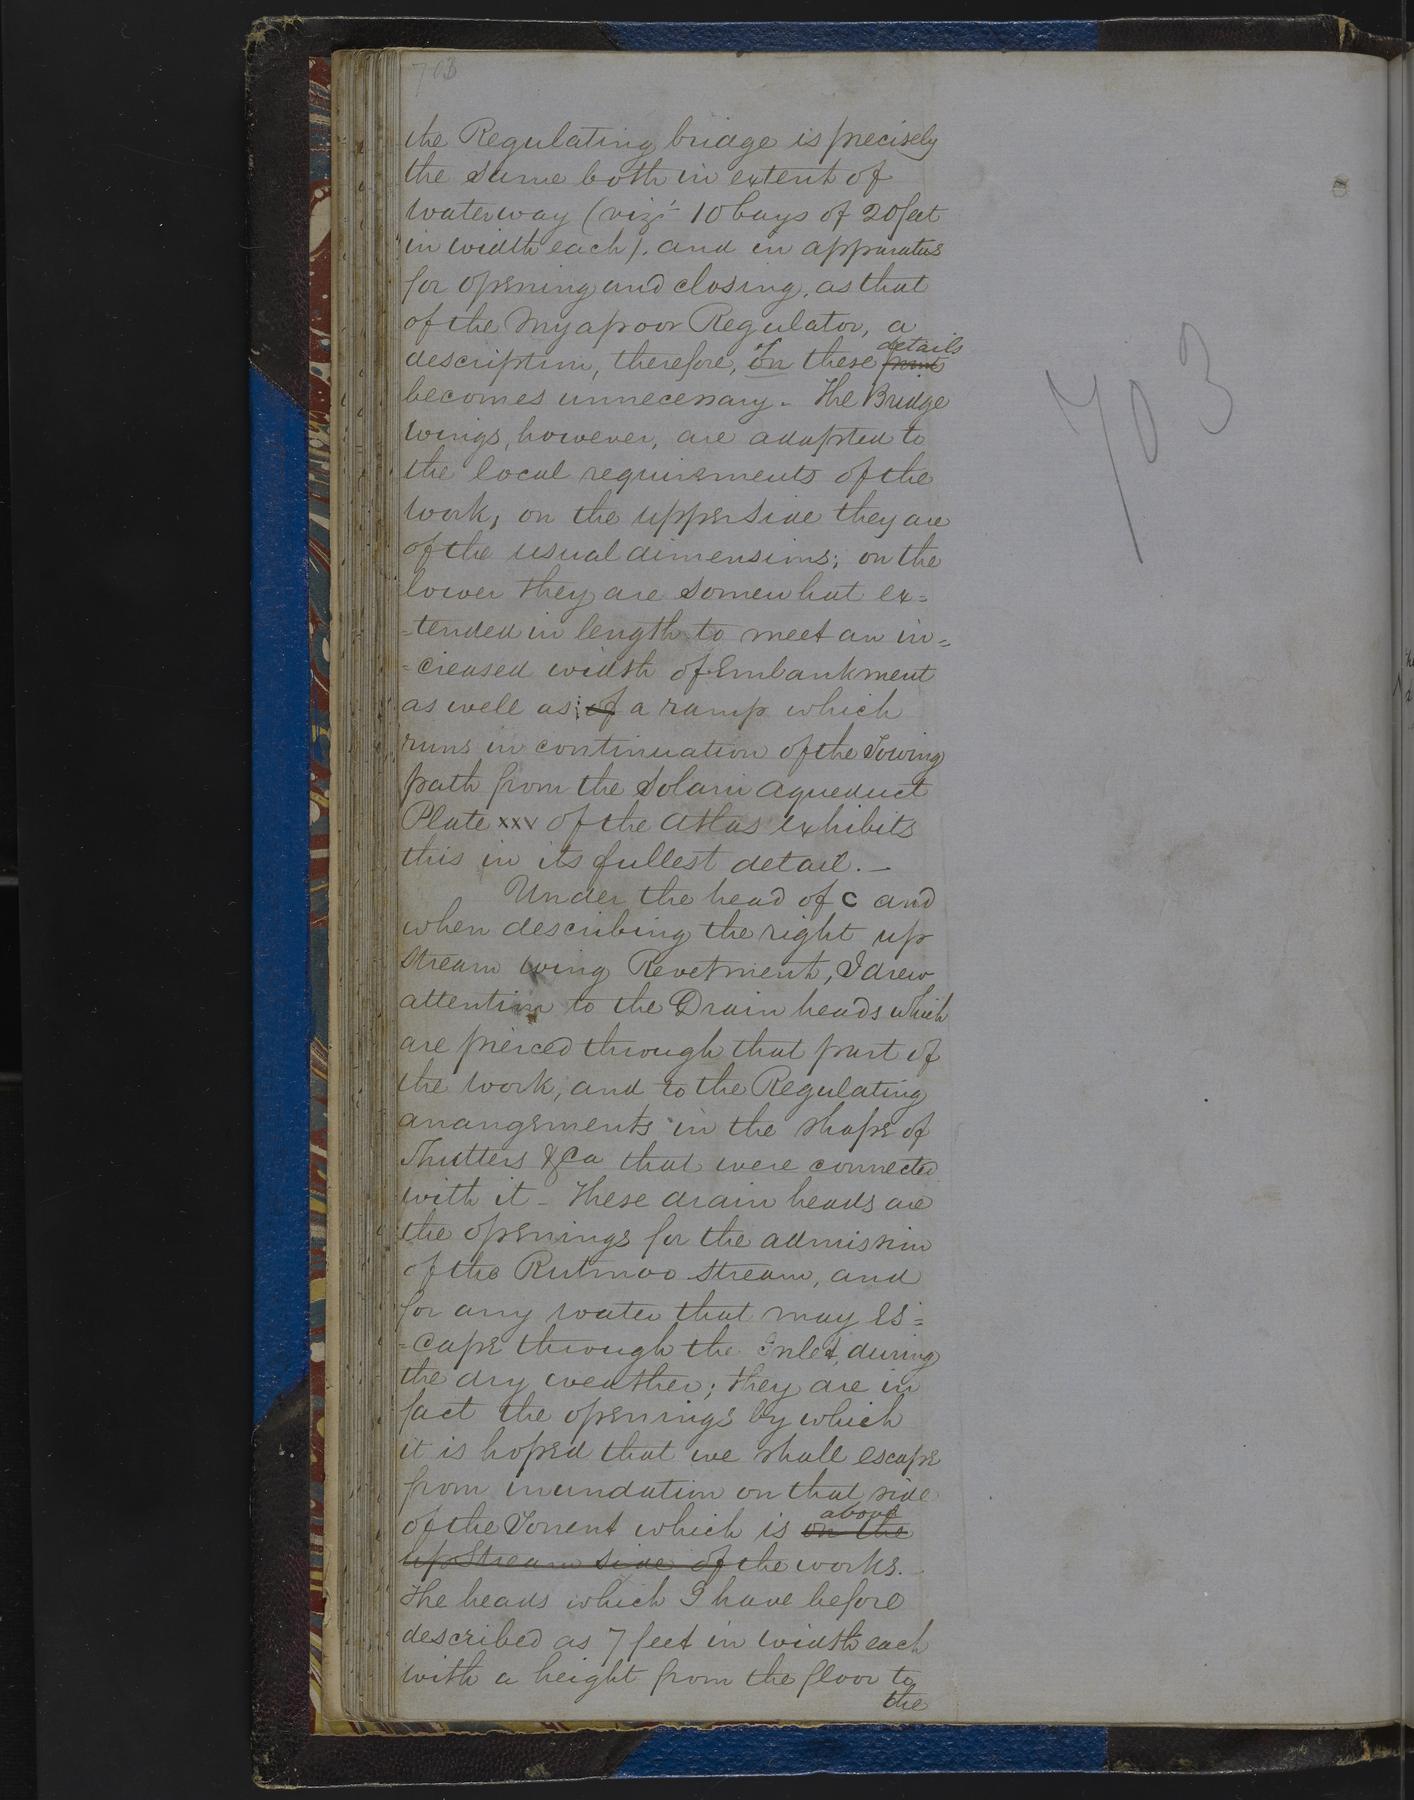 703
the Regulating bridge is precisely
the same both in extent of
waterway (viz: 10 bays of 20 feet
in width each). and in apparatus
for opening and closing, as that
of the Myapoor Regulator, a
details
description, therefore, in these
becomes unnecessary - The Bridge
wings, however, are adapted to
the local requirements of the
work, on the upper side they are
of the usual dimensions; on the
lower they are somewhat ex=
=tended in length to meet an in=
=creased width of Embankment
as well as of a ramp which
runs in continuation of the Towing
path from the Solani aqueduct
Plate xxv of the atlas exhibits
this in its fullest detail. -
Under the head of C and
when describing the right up
stream wing Revetment, I drew
attention to the Drain heads which
are pierced through that part of
the work, and to the Regulating
arrangements in the shape of
Shutters &Ca that were connected
with it - These drain heads are
the openings for the admission
of the Rutmoo stream, and
for any water that may es=
=cape through the Inlet, during
the dry weather; they are in
fact the openings by which
it is hoped that we shall escape
from inundation on that side
above
of the Torrent which is on the
up stream side of the works.
The heads which I have before
described as 7 feet in width each
with a height from the floor to
the
703